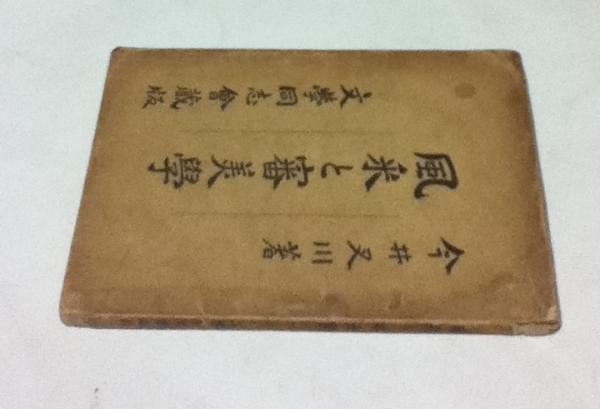 今井叉川著
風采と審美學
文學同志會藏版